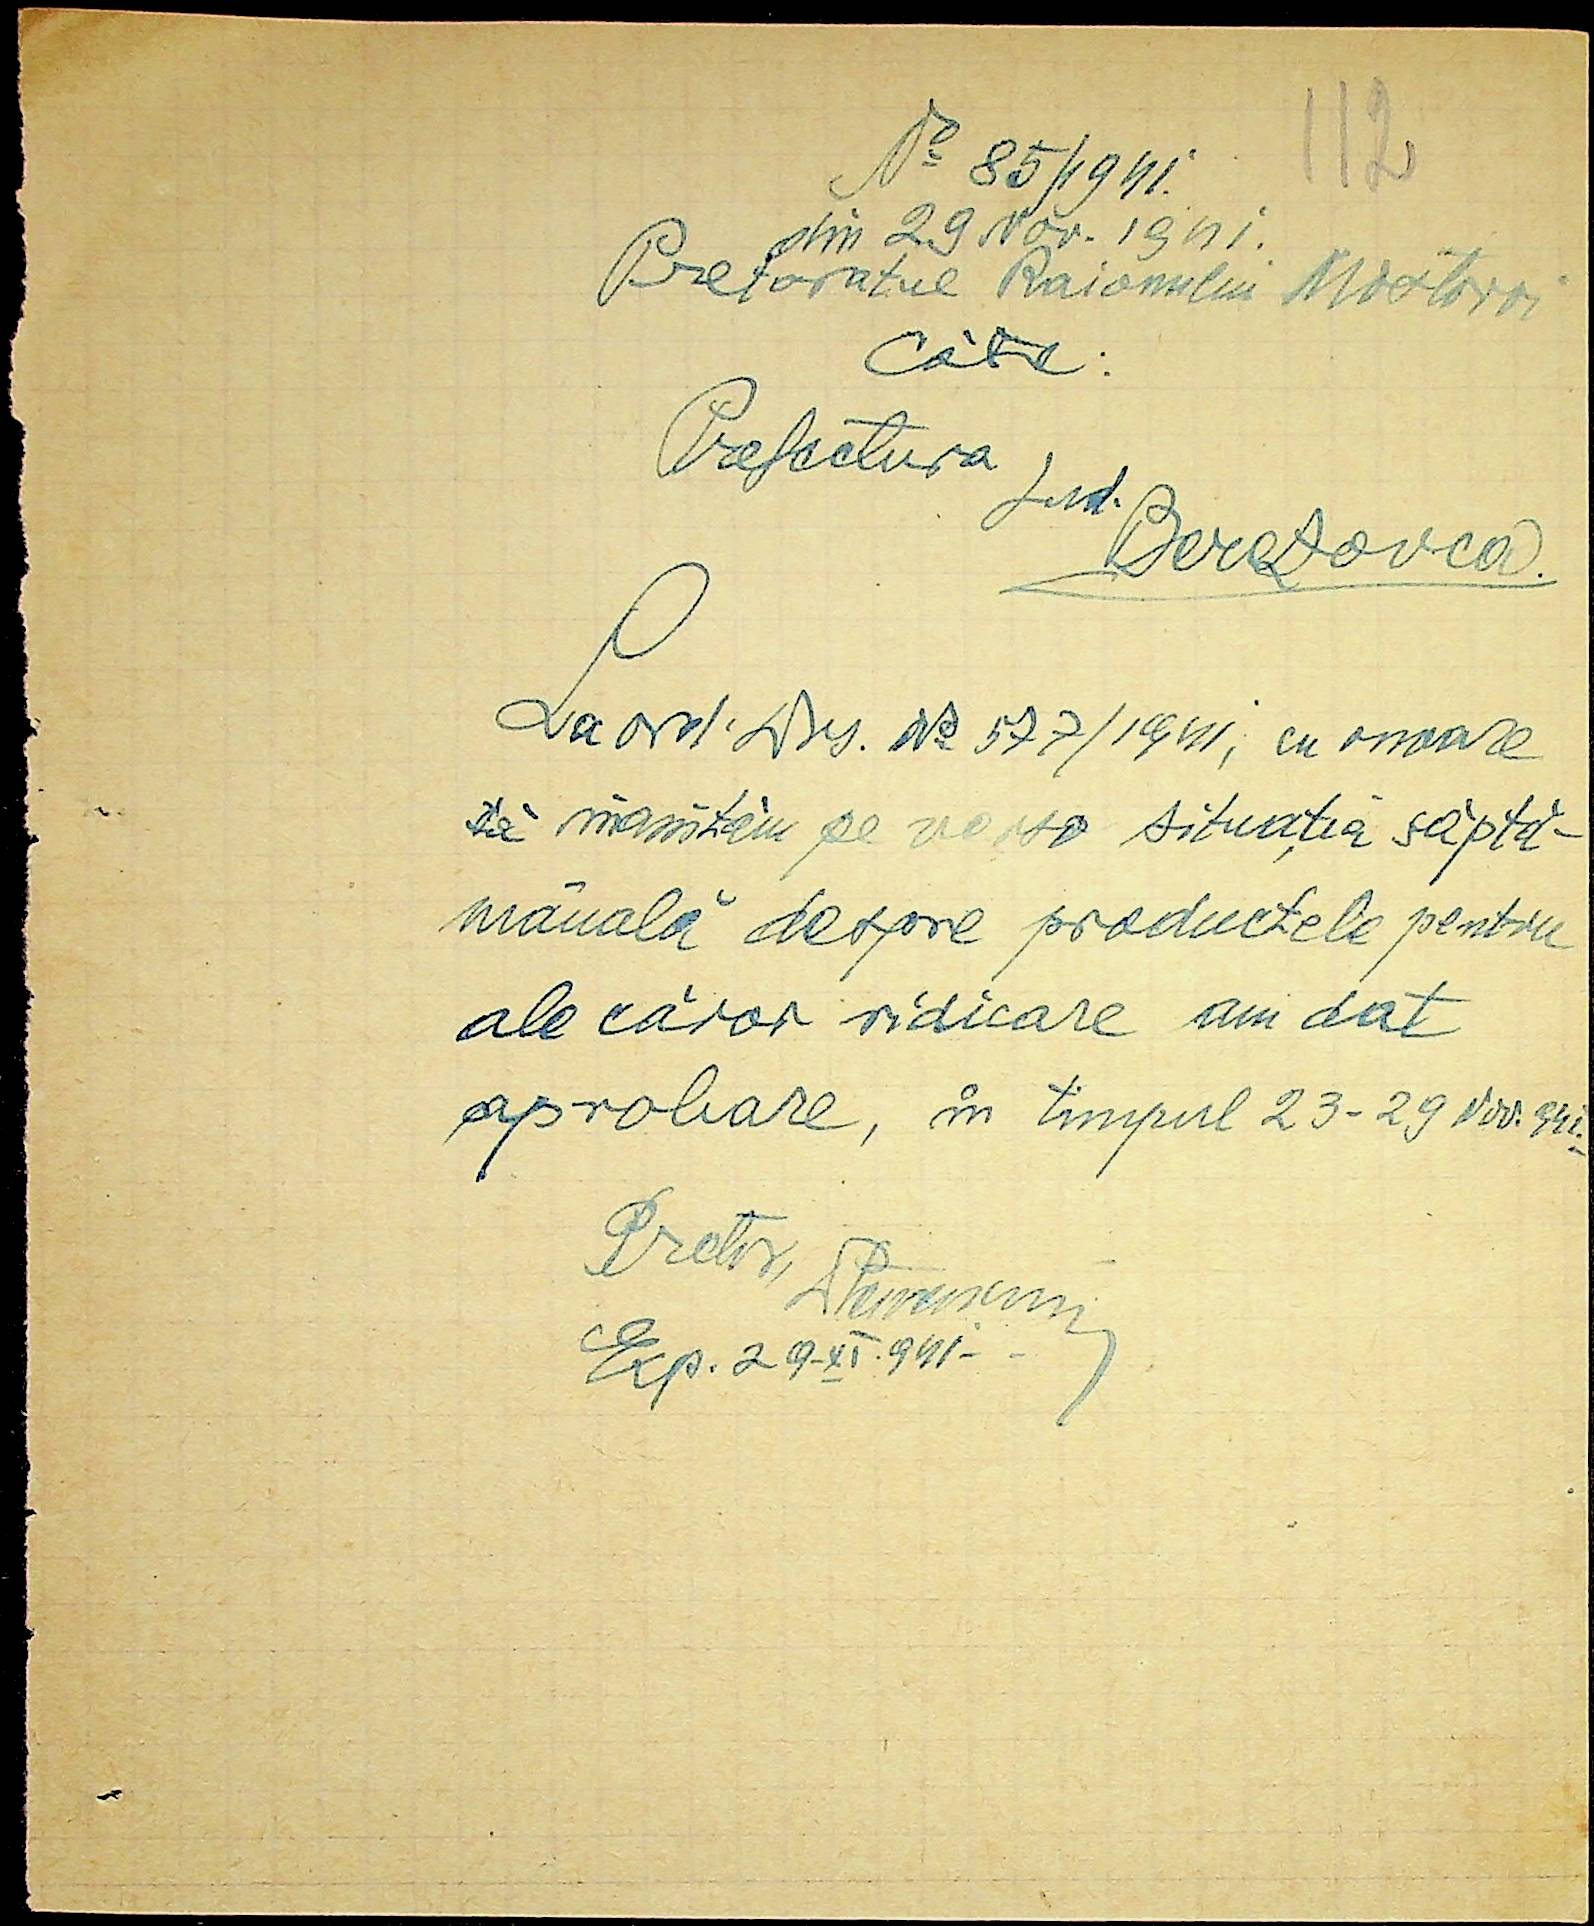 112
No 85/1941.
din 29 Nov. 1941.
Pretoratul Raionului Mostovoi
Către:
Prefectura
Jud.
Berezovca.
La ord. Dvs. No 577/1941, cu onoare
vă înaintăm pe verso situația săptă-
mânală despre productele pentru
ale căror ridicare am dat
aprobare, în timpul 23-29 Nov. 941.
Pretor,
Exp. 29-XI.941-